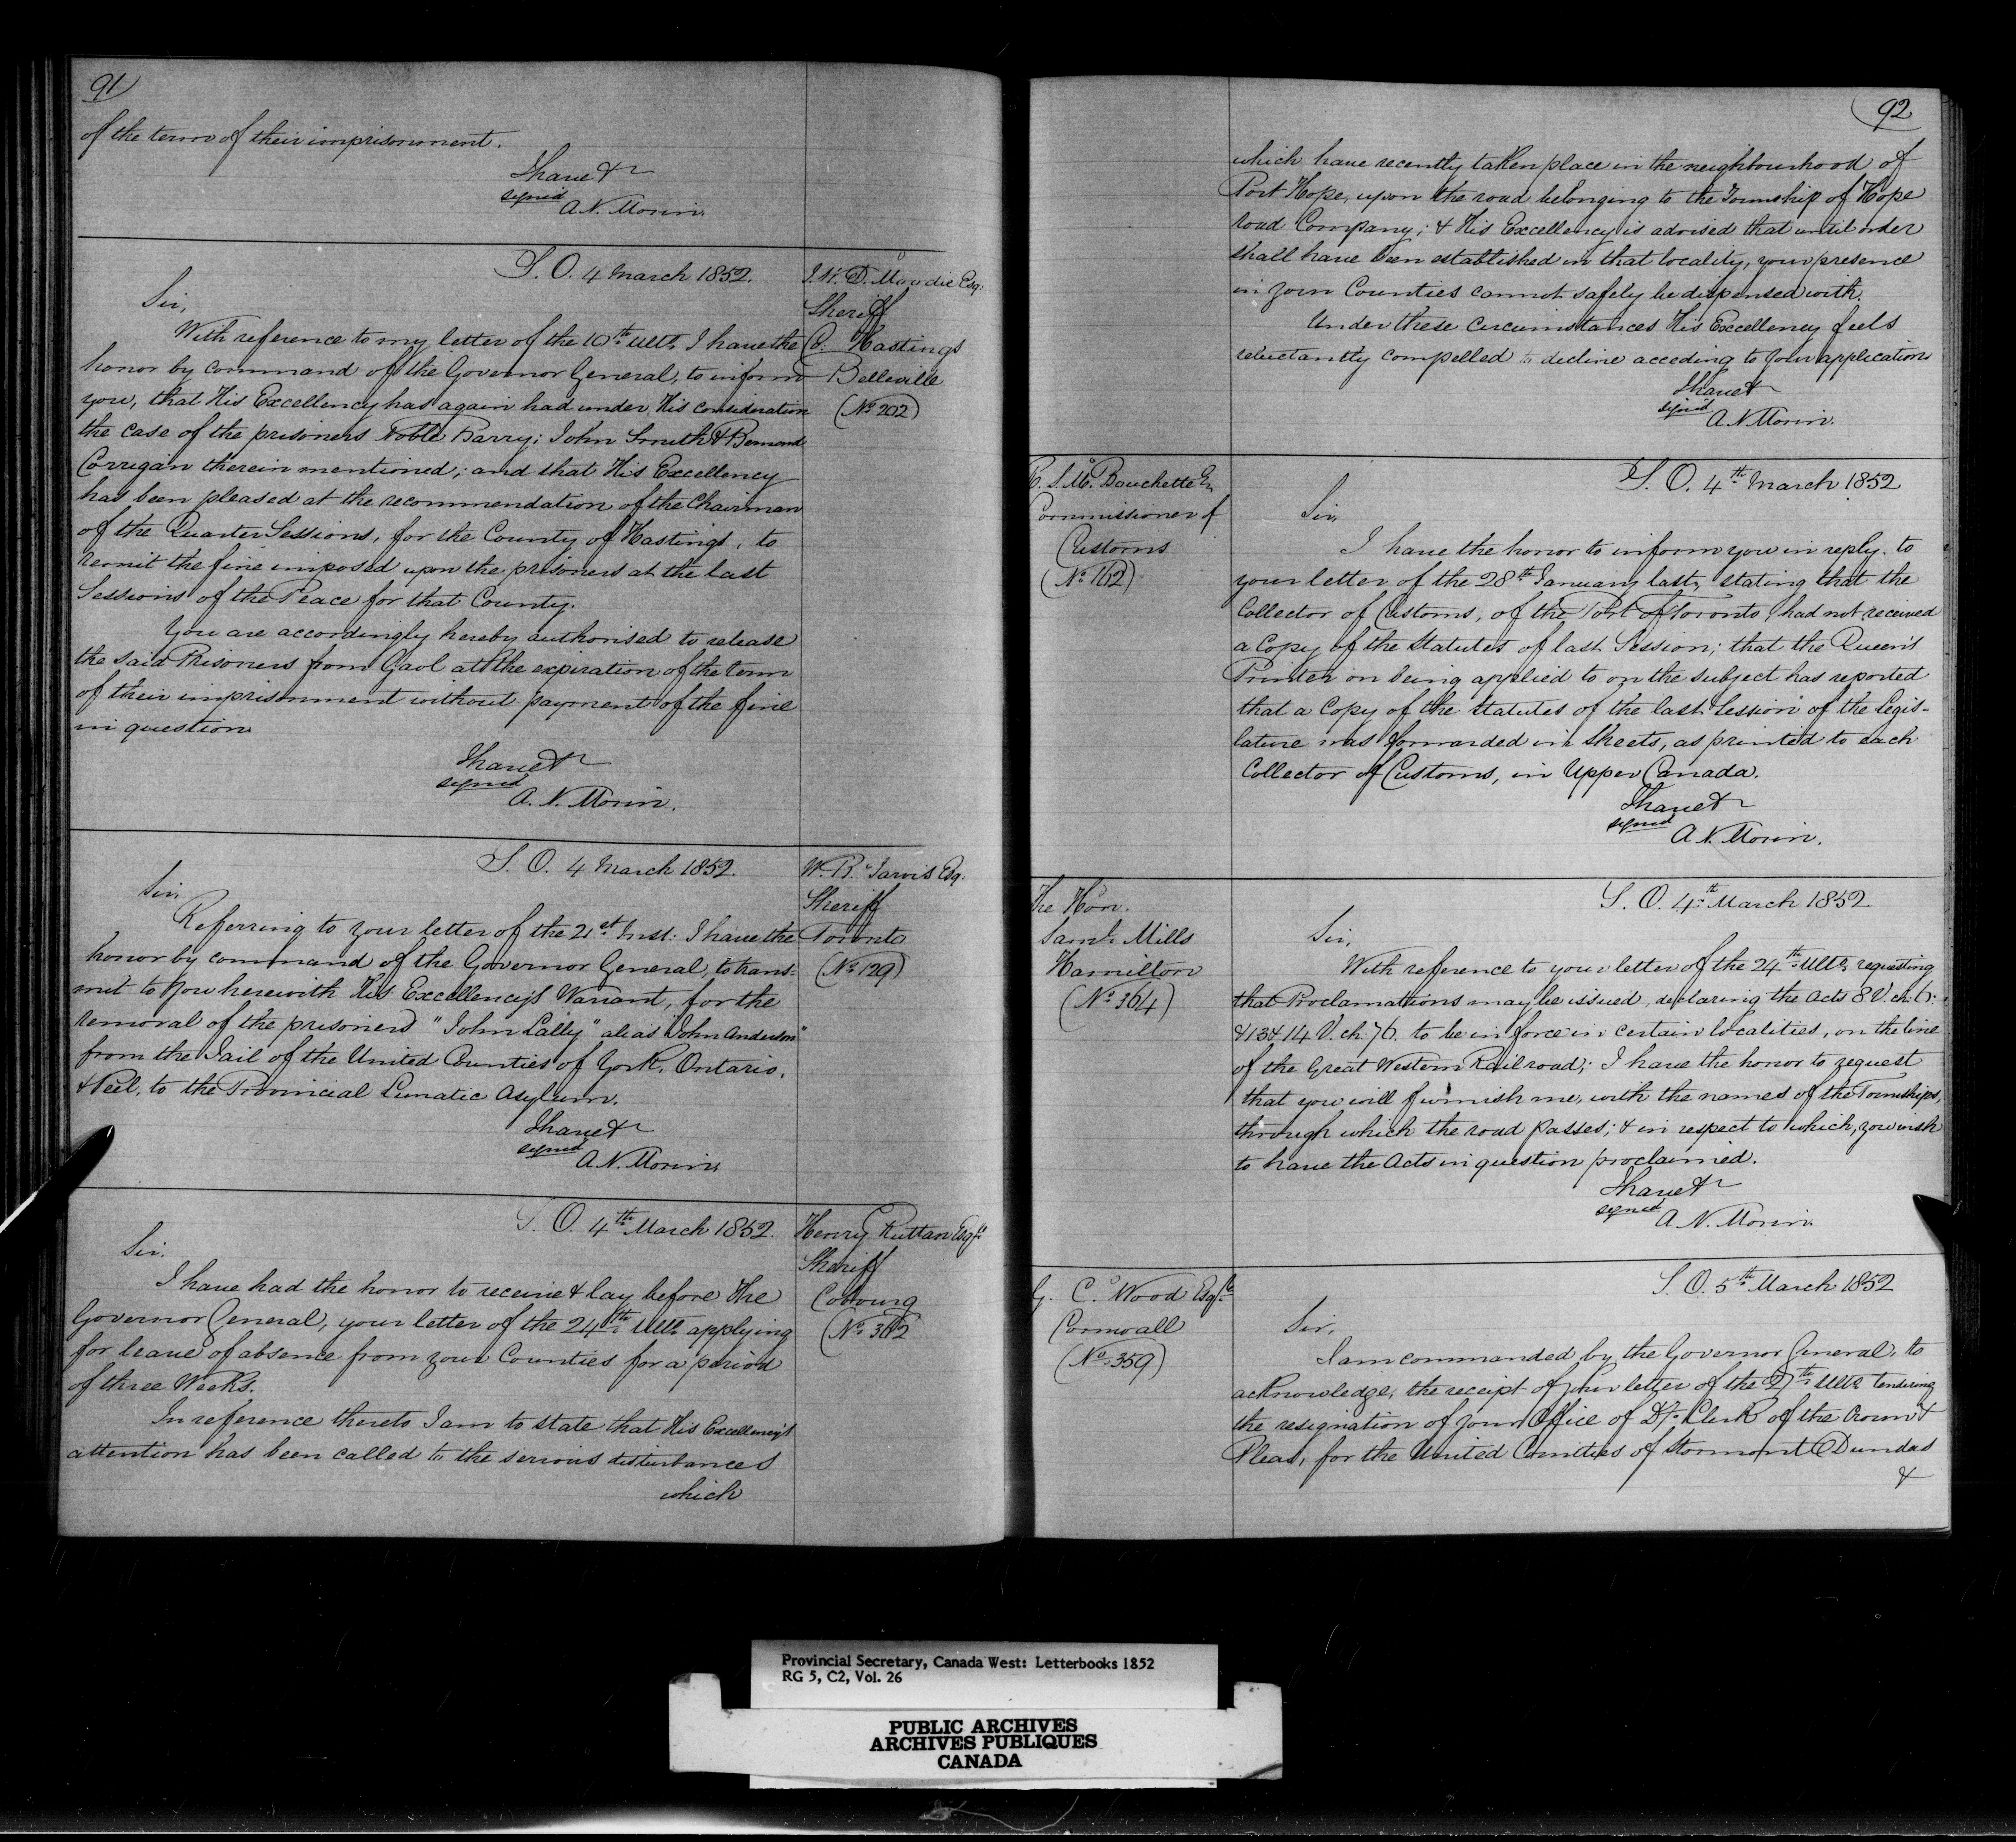 91
of the term of their imprisonment.
I have &c
signed
A. N. Morin.
S. O. 4 March 1852.
J. W. D. Moodie Esq.
Sheriff
Co. Hastings
Belleville
(No. 202)
Sir,
With reference to my letter of the 10th Ulto. I have the
honor by command of the Governor General, to inform
you, that His Excellency has again had under His consideration
the case of the prisoners Noble Barry; John Smith & Bernard
Corrigan therein mentioned; and that His Excellency
has been pleased at the recommendation of the Chairman
of the Quarter Sessions, for the County of Hastings, to
remit the fine imposed upon the prisoners at the last
Sessions of the Peace for that County.
You are accordingly hereby authorised to release
the said Prisoners from Gaol at the expiration of the term
of their imprisonment without payment of the fine
in question
I have &c
signed
A. N. Morin.
S. O. 4 March 1852.
W. B. Jarvis Esq.
Sheriff
Toronto
(No. 129)
Sir,
Referring to your letter of the 21st Inst. I have the
honor by command of the Governor General, to trans-
mit to you herewith His Excellency's Warrant, for the
removal of the prisoners "John Lally" alias "John Anderson"
from the Jail of the United Counties of York, Ontario,
& Peel, to the Provincial Lunatic Asylum.
I have &c
signed
A. N. Morin
S. O. 4th March 1852.
Henry Ruttan Esqre
Sheriff
Cobourg
(No. 362
Sir.
I have had the honor to receive & lay before the
Governor General, your letter of the 24th Ulto. applying
for leave of absence from your Counties for a period
of three Weeks.
In reference thereto I am to state that His Excellency's
attention has been called to the serious disturbances
which
92
which have recently taken place in the neighbourhood of
Port Hope, upon the road belonging to the Township of Hope
road Company; & His Excellency is advised that until order
shall have been established in that locality, your presence
in your Counties cannot safely be dispensed with.
Under these circumstances His Excellency feels
reluctantly compelled to decline acceding to your application
I have &
signed
A. N. Morin.
R. S. M. Bouchette Es
Commissioner of
Customs
(No. 162)
S. O. 4th March 1852
Sir,
I have the honor to inform you in reply to
your letter of the 28th January last, stating that the
Collector of Customs, of the Port of Toronto, had not received
a Copy of the Statutes of last Session; that the Queen's
Printer on being applied to on the subject has reported
that a Copy of the Statutes of the last Session of the Legis-
lature was forwarded in Sheets, as printed to each
Collector of Customs, in Upper Canada.
I have &c
signed
A. N. Morin.
The Hon.
Saml. Mills
Hamilton
(No. 364)
S. O. 4th March 1852
Sir,
With reference to your letter of the 24th Ulto. requesting
that Proclamations may be issued, declaring the Acts 8 V. ch. 6.
& 13 & 14 V. ch. 76. to be in force in certain localities, on the line
of the Great Western Railroad; I have the honor to request
that you will furnish me, with the names of the Townships,
through which the road passes; & in respect to which, you wish
to have the Acts in question proclaimed.
I have &c
signed
A. N. Morin.
G. C. Wood Esqre
Cornwall
(No. 359)
S. O. 5th March 1852
Sir,
I am commanded by the Governor General, to
acknowledge, the receipt of your letter of the Ulto. tendering
the resignation of your Office of Dy. Clerk of the Crown &
Pleas, for the United Counties of Stormont Dundas
&
Provincial Secretary, Canada West: Letterbooks 1852
RG 5, C2, Vol. 26
PUBLIC ARCHIVES
ARCHIVES PUBLIQUES
CANADA